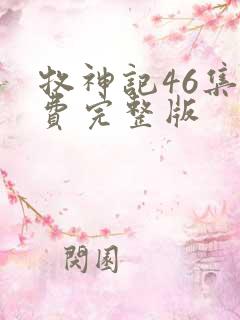 牧神記46集
費完整版
閱園